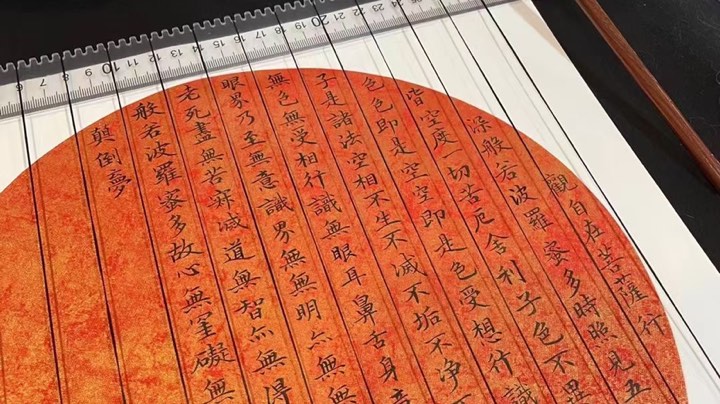 觀自在菩薩行
深般若波羅蜜多時照見五
皆空度一切苦厄舍利子色不異
色色即是空空即是色受想行識
子是諸法空相不生不滅不垢不净不
無色無受相行識無眼耳鼻舌身意
眼界乃至無意識界無無明亦無無
老死盡無苦寂滅道無智亦無得
般若波羅蜜多故心無罣礙無
顛倒夢
6 7 8 9 10 20